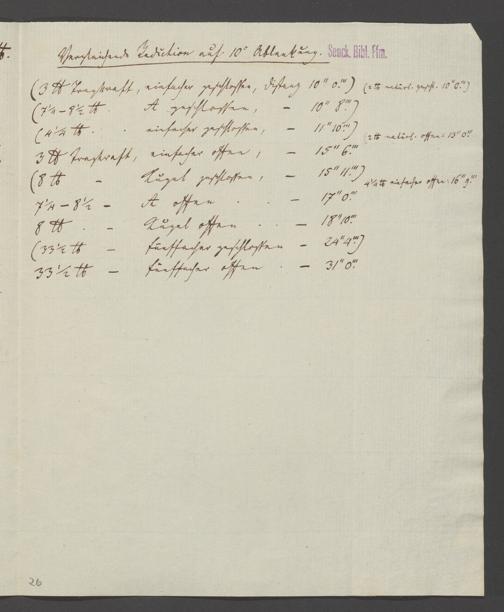 Vergleichende Reduction auf 10° Ablenkung. Senck. Bibl. Ffm.
(3 ℔ Tragkraft, einfacher geschlossen, Distanz 10" 0"') (2 ℔ natürl. geschl. 10"0"')
(7¼ – 8½ ℔. A geschlossen, – 10" 8"')
(4¼ ℔. einfacher geschlossen, – 11"10"') 2 ℔ natürl. offen 13" 0"'
3 ℔ Tragkraft, einfacher offen, – 15" 6"'
(8 ℔ – Kugel geschlossen, – 15" 11"') 4¼ ℔ einfacher offen 16" 9"'
7¼ – 8½ – A offen – 17" 0"'
8 ℔ – Kugel offen – 18"10"'
(33½ ℔ – fünffacher geschlossen – 24"4"')
33½ ℔ – fünffacher offen – 31" 0"'
26